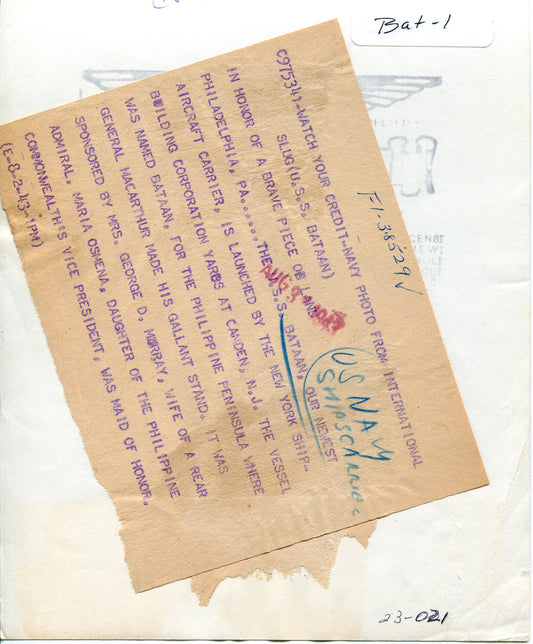 Bat-1
C975341-WATCH YOUR CREDIT-NAVY PHOTO FROM INTERNATIONAL
SLUG(U.S.S. BATAAN)
IN HONOR OF A BRAVE PIECE OF LAND
PHILADELPHIA, PA......THE U.S.S. BATAAN, OUR NEWEST
AIRCRAFT CARRIER, IS LAUNCHED BY THE NEW YORK SHIP-
BUILDING CORPORATION YARDS AT CAMDEN, N.J. THE VESSEL
WAS NAMED BATAAN, FOR THE PHILIPPINE PENINSULA WHERE
GENERAL MACARTHUR MADE HIS GALLANT STAND. IT WAS
SPONSORED BY MRS. GEORGE D. MURRAY, WIFE OF A REAR
ADMIRAL. MARIA OSMENA, DAUGHTER OF THE PHILIPPINE
COMMONWEALTH'S VICE PRESIDENT, WAS MAID OF HONOR.
(E-8-2-43-1PM)
F1-38529
AUG 9
US NAVY
SHIPS
23-021